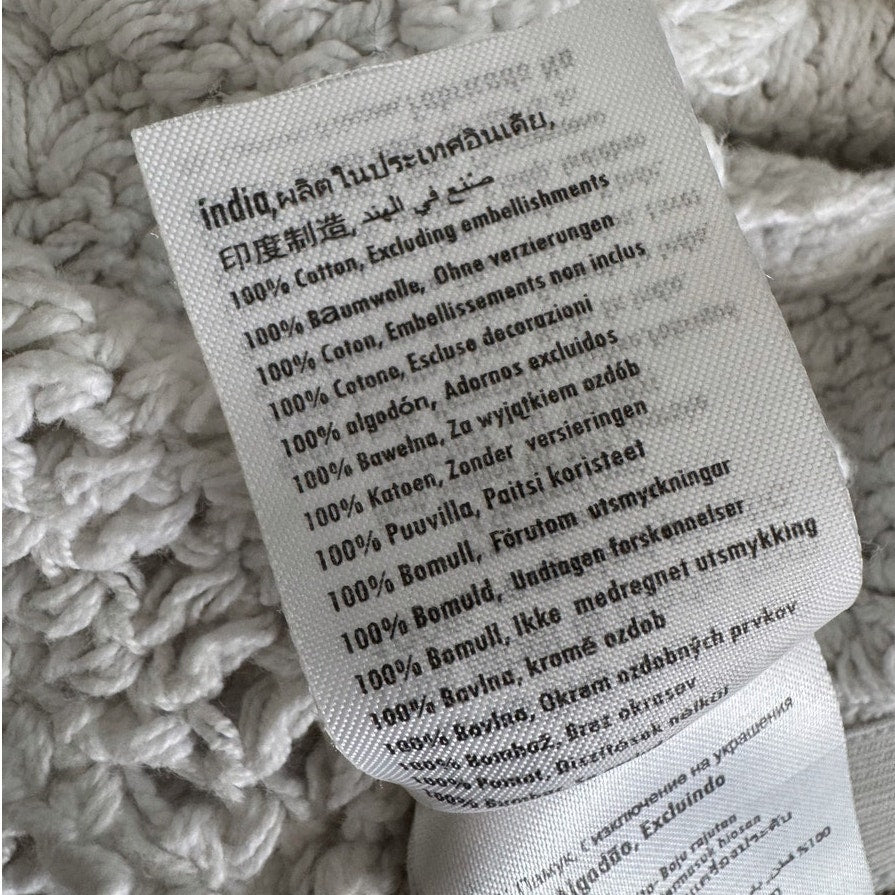 índia,ผลิตในประเทศอินเดีย,
印度制造, صنع في الهند
100% Cotton, Excluding embellishments
100% Baumwolle, Ohne verzierungen
100% Coton, Embellissements non inclus
100% Cotone, Escluse decorazioni
100% algodón, Adornos excluidos
100% Bawełna, Za wyjątkiem ozdób
100% Katoen, Zonder versieringen
100% Puuvilla, Paitsi koristeet
100% Bomull, Förutom utsmyckningar
100% Bomuld, Undtagen forskønnelser
100% Bomull, Ikke medregnet utsmykking
100% Bavlna, kromě ozdob
100% Bavlna, Okrem ozdobných prvkov
100% Bombaž, Brez okrasov
100% Pamut, Díszítések nélkül
с изключение на украшения
Algodão, Excluindo
%100